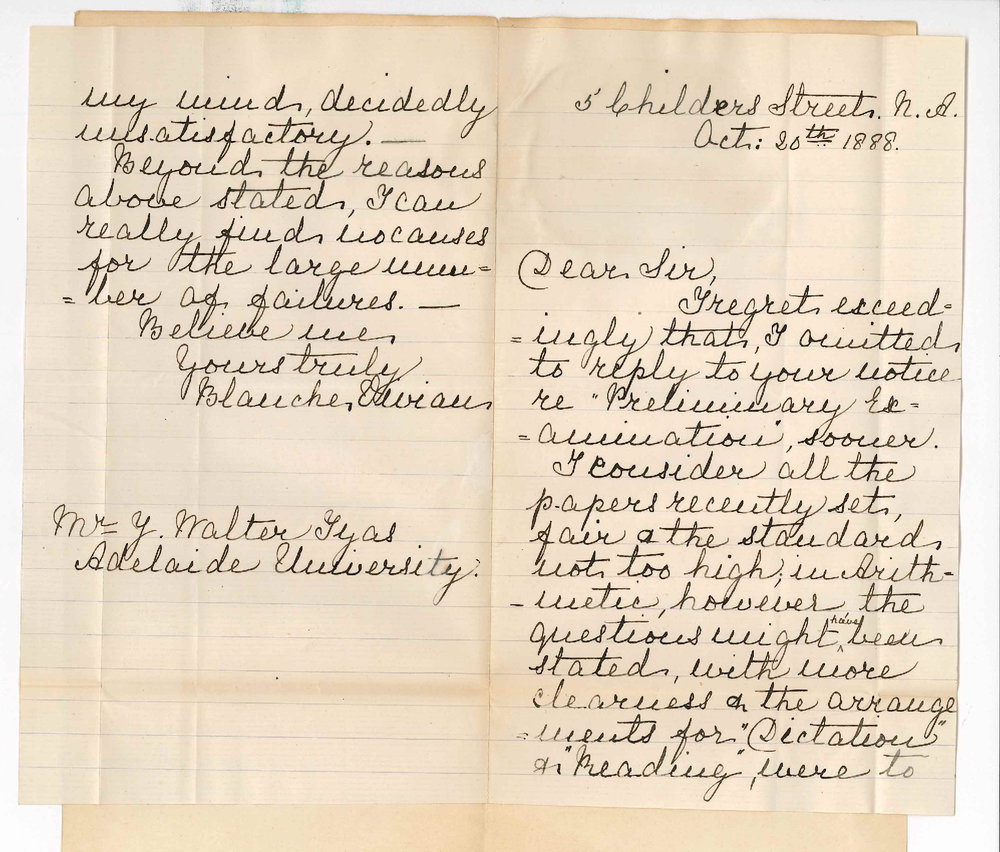 5 Childers Street. N. A.
Oct: 20th 1888.
Dear Sir,
I regret exceed=
=ingly that, I omitted
to reply to your notice
re "Preliminary Ex=
=amination", sooner.
I consider all the
papers recently set,
fair & the standard
not too high; in Arith=
-metic, however the
questions might have been
stated, with more
clearness & the arrange
=ments for "Dictation"
& "Reading", were to
my mind, decidedly
unsatisfactory. —
Beyond the reasons
above stated, I can
really find no causes
for the large num=
=ber of failures. —
Believe me
Yours truly
Blanche Vivian
Mr Y. Walter Tyas
Adelaide University.